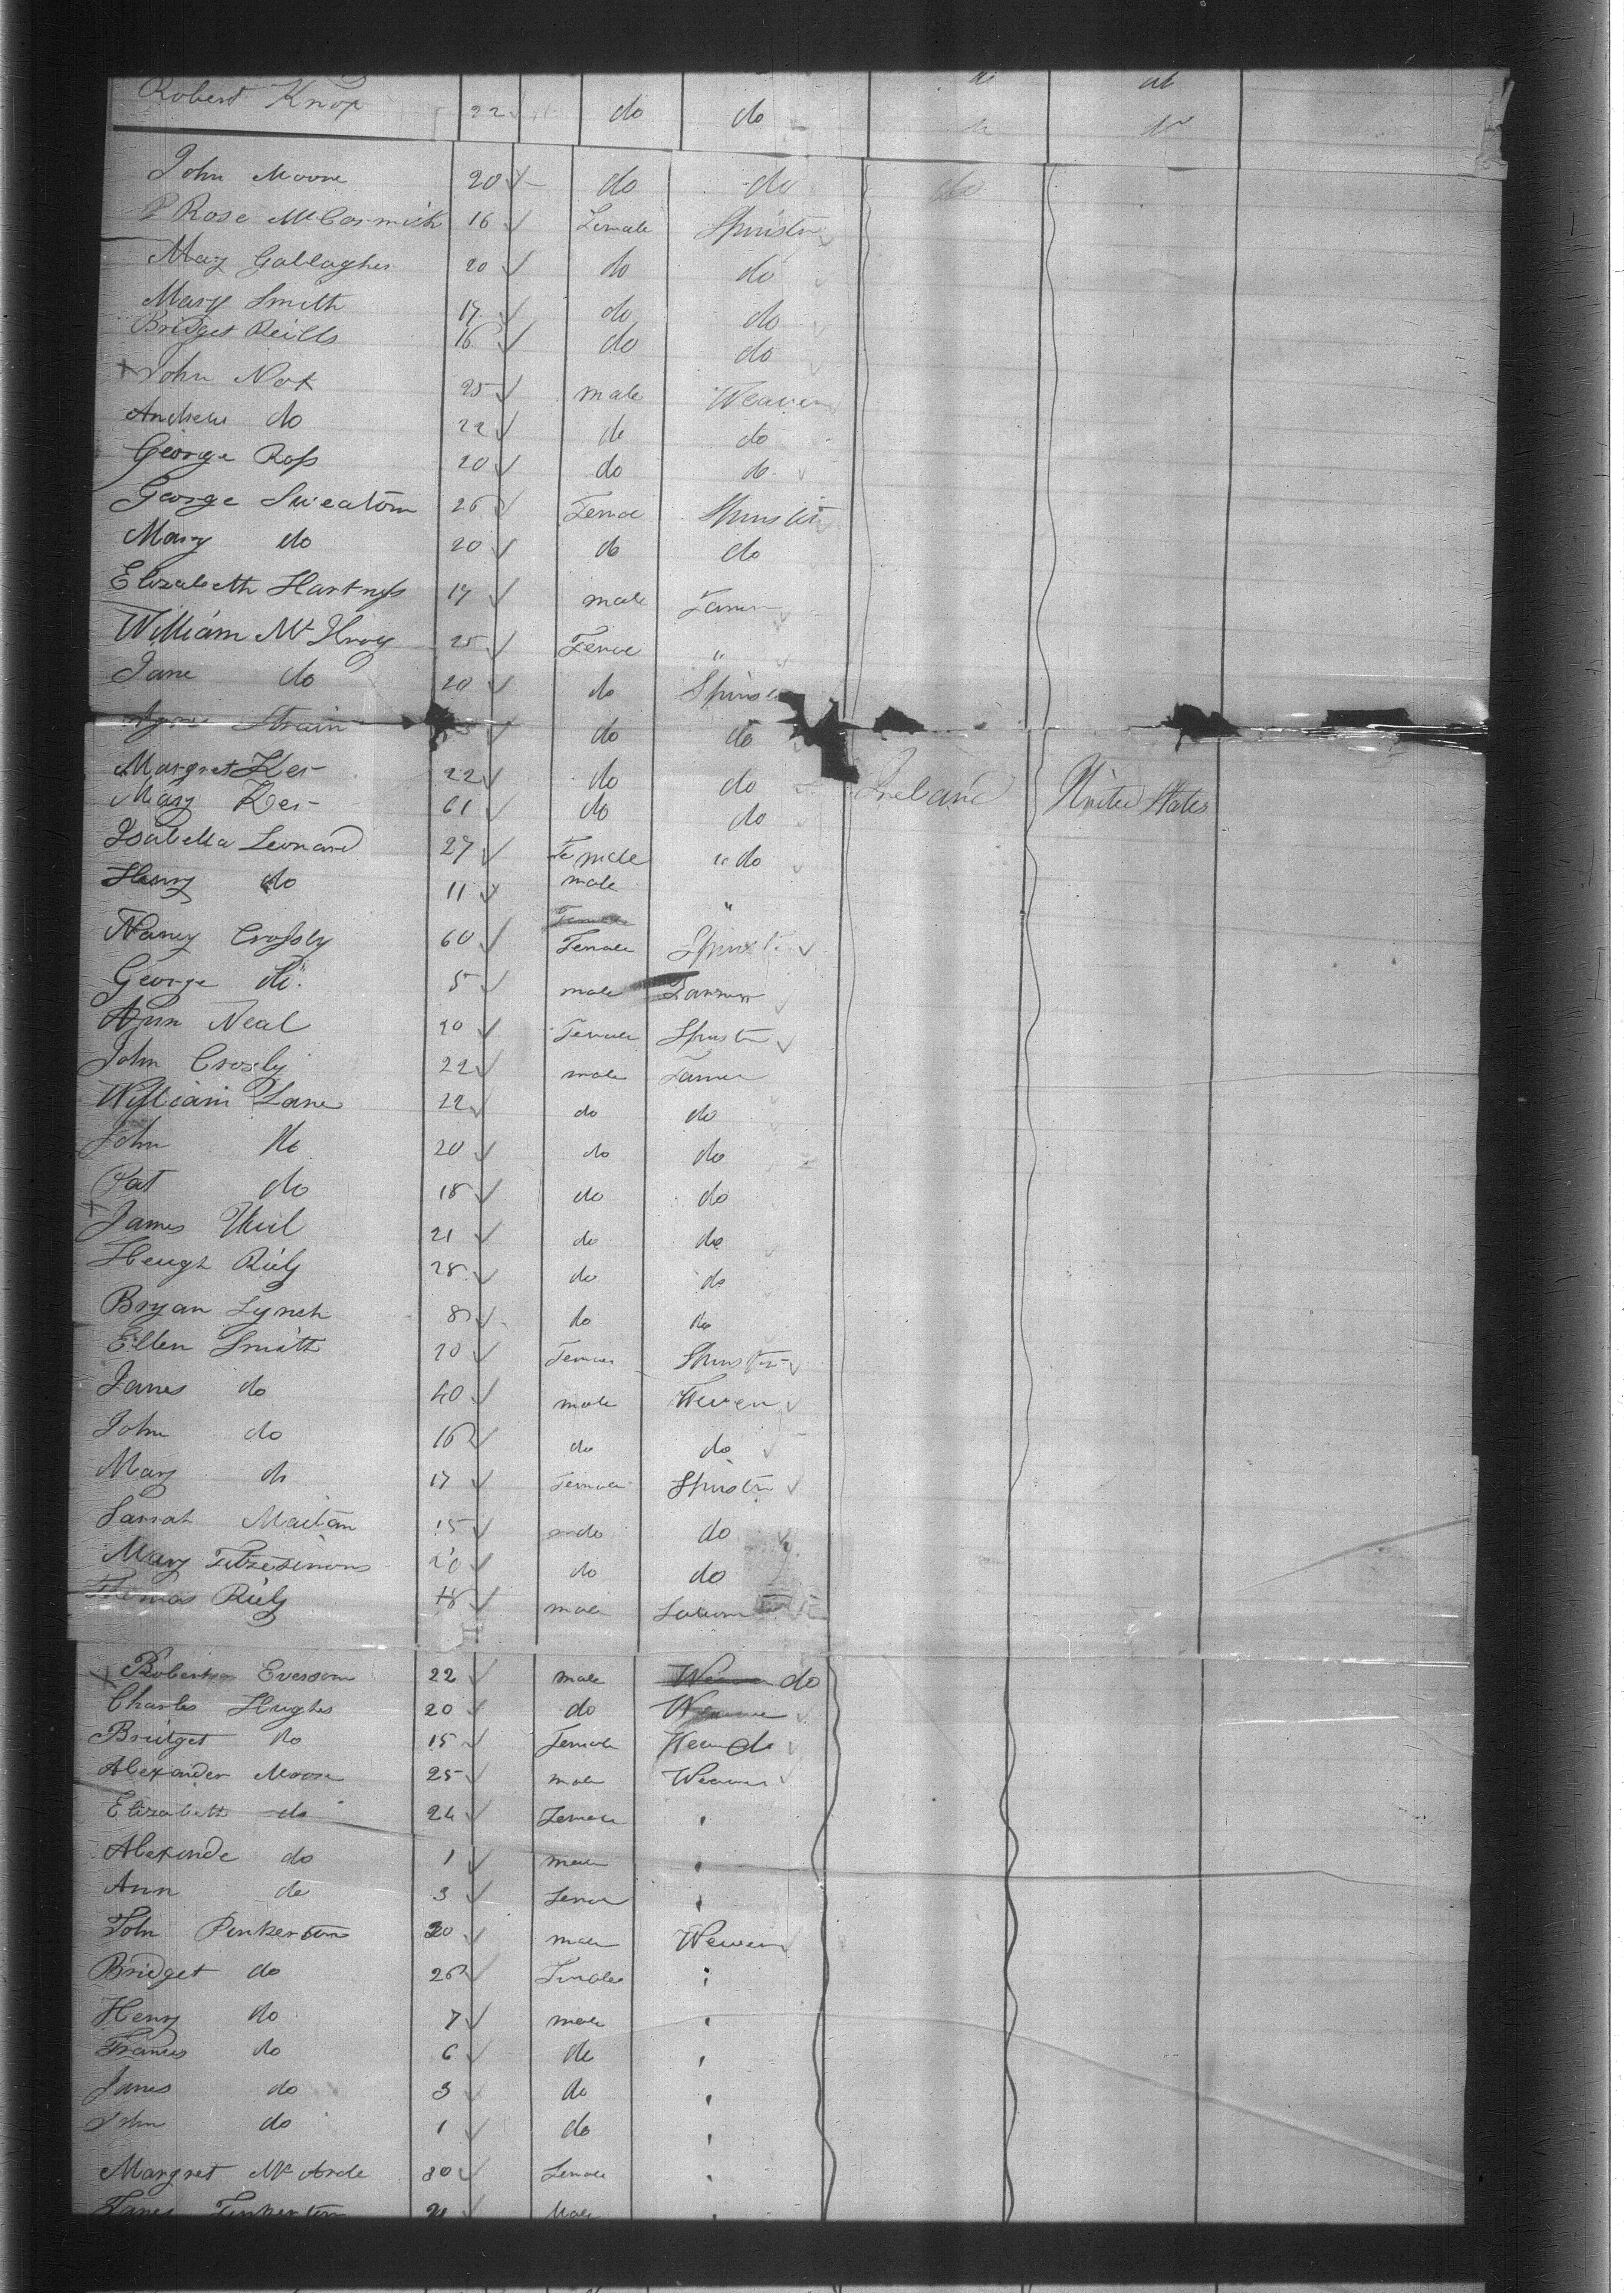 Robert Knox 22 do do do do
John Moore 20 do do do
Rose McCormick 16 Female Spinster
Mary Gallagher 20 do do
Mary Smith 17 do do
Bridget Reilly 16 do do
John Nox 25 male Weaver
Andrew do 22 do do
George Ross 20 do do
George Sweatom 26 Female Spinster
Mary do 20 do do
Elizabeth Hartness 17 male Farmer
William 25 Female "
Jane do 20 do Spinster
Strain do do
Margret Ker 22 do do Ireland United States
Mary Ker 61 do do
Isabella Leonard 27 Female " do
Henry do 11 male "
Nancy Crossly 60 Female Spinster
George do 5 male Farmer
Ann Neal 20 Female Spinster
John Crosly 22 male Farmer
William Lane 22 do do
John do 20 do do
Pat do 18 do do
James 21 do do
Heugh Riely 28 do do
Bryan Lynch 8 do do
Ellen Smith 20 Female Spinster
James do 40 male Weaver
John do 16 do do
Mary do 17 Female Spinster
Sarrah 15 do do
Mary Fitzesimons 20 do do
Thomas Riely 18 male
Robert Eversom 22 male do
Charles Hughes 20 do Weaver
Bridget do 15 Female do
Alexander Moore 25 male Weaver
Elizabeth do 24 Female "
Alexande do 1 male "
Ann do 3 Female "
John Pinkerton 30 male Weaver
Bridget do 26 Female "
Henry do 7 male "
Francis do 6 do "
James do 3 do "
John do 1 do "
Margret McArdle 30 Female "
James Pinkerton Male "